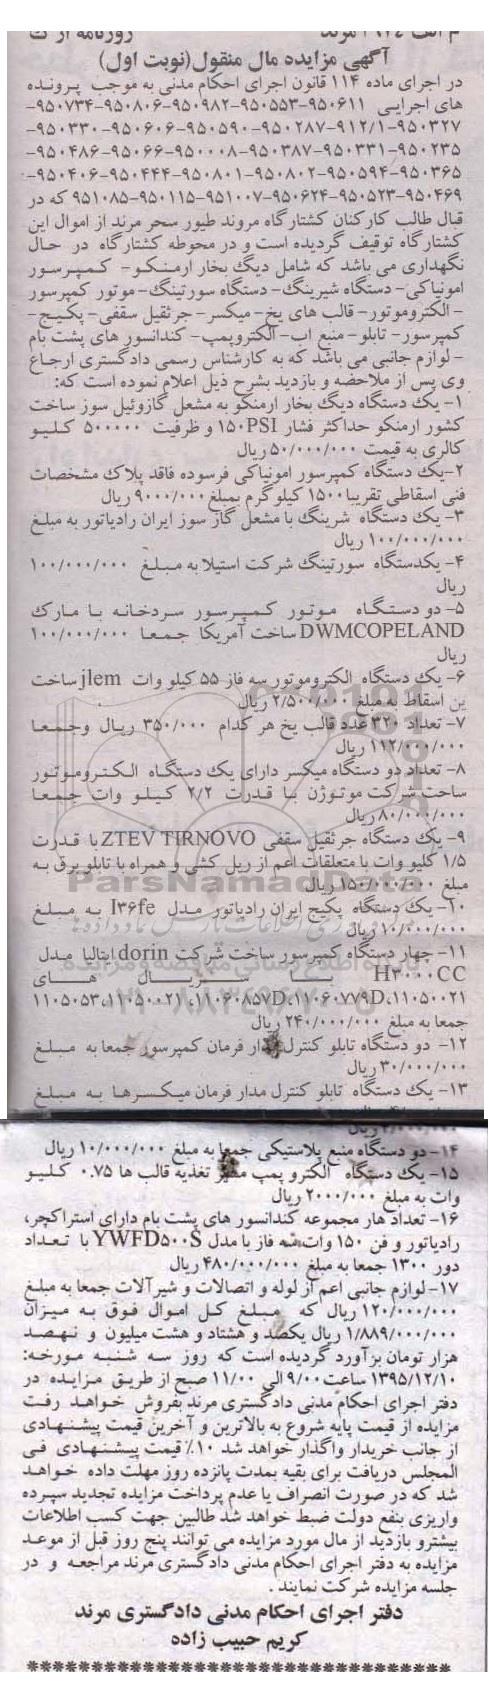 م الف ۳۹۲۴ مرند
آگهی مزایده مال منقول(نوبت اول)
در اجرای ماده ۱۱۴ قانون اجرای احکام مدنی به موجب پرونده
های اجرایی ۹۵۰۶۱۱-۹۵۰۵۵۳-۹۵۰۹۸۲-۹۵۰۸۰۶-۹۵۰۷۳۴-
۹۵۰۳۲۷-۹۱۲/۱-۹۵۰۲۸۷-۹۵۰۵۹۰-۹۵۰۶۰۶-۹۵۰۳۳۰-
۹۵۰۲۳۵-۹۵۰۳۳۱-۹۵۰۳۸۷-۹۵۰۰۰۸-۹۵۰۶۶-۹۵۰۴۸۶-
۹۵۰۳۶۵-۹۵۰۵۹۴-۹۵۰۸۰۲-۹۵۰۸۰۱-۹۵۰۴۴۴-۹۵۰۴۰۶-
۹۵۰۴۶۹-۹۵۰۵۲۳-۹۵۰۶۲۴-۹۵۱۰۰۷-۹۵۰۱۱۵-۹۵۱۰۸۵ که در
قبال طالب کارکنان کشتارگاه مروند طیور سحر مرند از اموال این
کشتارگاه توقیف گردیده است و در محوطه کشتارگاه در حال
نگهداری می باشد که شامل دیگ بخار ارمنکو- کمپرسور
امونیاکی- دستگاه شیرینگ- دستگاه سورتینگ-موتور کمپرسور
- الکتروموتور- قالب های یخ- میکسر- جرثقیل سقفی- پکیج-
کمپرسور- تابلو- منبع اب- الکتروپمپ- کندانسور های پشت بام
- لوازم جانبی می باشد که به کارشناس رسمی دادگستری ارجاع
وی پس از ملاحضه و بازدید بشرح ذیل اعلام نموده است که:
۱- یک دستگاه دیگ بخار ارمنکو به مشعل گازوئیل سوز ساخت
کشور ارمنکو حداکثر فشار ۱۵۰PSI و ظرفیت ۵۰۰۰۰۰ کلیو
کالری به قیمت ۵۰/۰۰۰/۰۰۰ ریال
۲-یک دستگاه کمپرسور امونیاکی فرسوده فاقد پلاک مشخصات
فنی اسقاطی تقریبا ۱۵۰۰ کیلوگرم بمبلغ ۹۰۰۰/۰۰۰ ریال
۳- یک دستگاه شرینگ با مشعل گاز سوز ایران رادیاتور به مبلغ
۱۰۰/۰۰۰/۰۰۰ ریال
۴- یکدستگاه سورتینگ شرکت استیلا به مبلغ ۱۰۰/۰۰۰/۰۰۰
ریال
۵- دو دستگاه موتور کمپرسور سردخانه با مارک
DWMCOPELAND ساخت آمریکا جمعا ۱۰۰/۰۰۰/۰۰۰
ریال
۶- یک دستگاه الکتروموتور سه فاز ۵۵ کیلو وات jlem ساخت
ین اسقاط به مبلغ ۲/۵۰۰/۰۰۰ ریال
۷- تعداد ۳۲۰ عدد قالب یخ هر کدام ۳۵۰/۰۰۰ ریال وجمعا
۱۱۲/۰۰۰/۰۰۰ ریال
۸- تعداد دو دستگاه میکسر دارای یک دستگاه الکتروموتور
ساخت شرکت موتوژن با قدرت ۲/۲ کیلو وات جمعا
۸۰/۰۰۰/۰۰۰ ریال
۹- یک دستگاه جرثقیل سقفی ZTEV TIRNOVO با قدرت
۱/۵ کلیو وات با متعلقات اعم از ریل کشی و همراه با تابلو برق به
مبلغ ۱۵۰/۰۰۰/۰۰۰ ریال
ParsNamadData
۱۰- یک دستگاه پکیج ایران رادیاتور مدل I۳۶fe به مبلغ
۱۰/۰۰۰/۰۰۰ ریال
۱۱- چهار دستگاه کمپرسور ساخت شرکت dorin ایتالیا مدل
H۳۰۰۰CC با سریال های
۱۱۰۵۰۰۲۱،۱۱۰۶۰۷۷۹D،۱۱۰۶۰۸۵۷D، ۱۱۰۵۰۰۲۱،۱۱۰۵۰۵۳
جمعا به مبلغ ۲۴۰/۰۰۰/۰۰۰ ریال
۱۲- دو دستگاه تابلو کنترل مدار فرمان کمپرسور جمعا به مبلغ
۳۰/۰۰۰/۰۰۰ ریال
۱۳- یک دستگاه تابلو کنترل مدار فرمان میکسرها به مبلغ
۱۴- دو دستگاه منبع پلاستیکی جمعا به مبلغ ۱۰/۰۰۰/۰۰۰ ریال
۱۵- یک دستگاه الکترو پمپ تغذیه قالب ها ۰.۷۵ کلیو
وات به مبلغ ۲۰۰۰/۰۰۰ ریال
۱۶- تعداد هار مجموعه کندانسور های پشت بام دارای استراکچر،
رادیاتور و فن ۱۵۰ وات سه فاز با مدل YWFD۵۰۰S با تعداد
دور ۱۳۰۰ جمعا به مبلغ ۴۸۰/۰۰۰/۰۰۰ ریال
۱۷- لوازم جانبی اعم از لوله و اتصالات و شیرآلات جمعا به مبلغ
۱۲۰/۰۰۰/۰۰۰ ریال که مبلغ کل اموال فوق به میزان
۱/۸۸۹/۰۰۰/۰۰۰ ریال یکصد و هشتاد و هشت میلیون و نهصد
هزار تومان برآورد گردیده است که روز سه شنبه مورخه:
۱۳۹۵/۱۲/۱۰ ساعت ۹/۰۰ الی ۱۱/۰۰ صبح از طریق مزایده در
دفتر اجرای احکام مدنی دادگستری مرند بفروش خواهد رفت
مزایده از قیمت پایه شروع به بالاترین و آخرین قیمت پیشنهادی
از جانب خریدار واگذار خواهد شد ۱۰٪ قیمت پیشنهادی فی
المجلس دریافت برای بقیه بمدت پانزده روز مهلت داده خواهد
شد که در صورت انصراف یا عدم پرداخت مزایده تجدید سپرده
واریزی بنفع دولت ضبط خواهد شد طالبین جهت کسب اطلاعات
بیشترو بازدید از مال مورد مزایده می توانند پنج روز قبل از موعد
مزایده به دفتر اجرای احکام مدنی دادگستری مرند مراجعه و در
جلسه مزایده شرکت نمایند .
دفتر اجرای احکام مدنی دادگستری مرند
کریم حبیب زاده